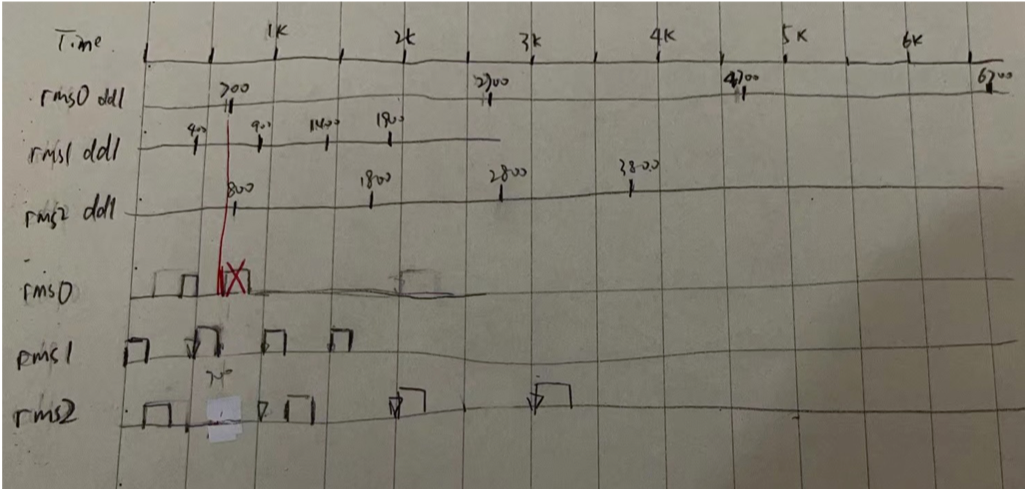 Time 1K 2K 3K 4K 5K 6K
rms0 ddl 700 2700 4700 6700
rms1 ddl 400 900 1400 1900
rms2 ddl 800 1800 2800 3800
rms0
rms1
rms2